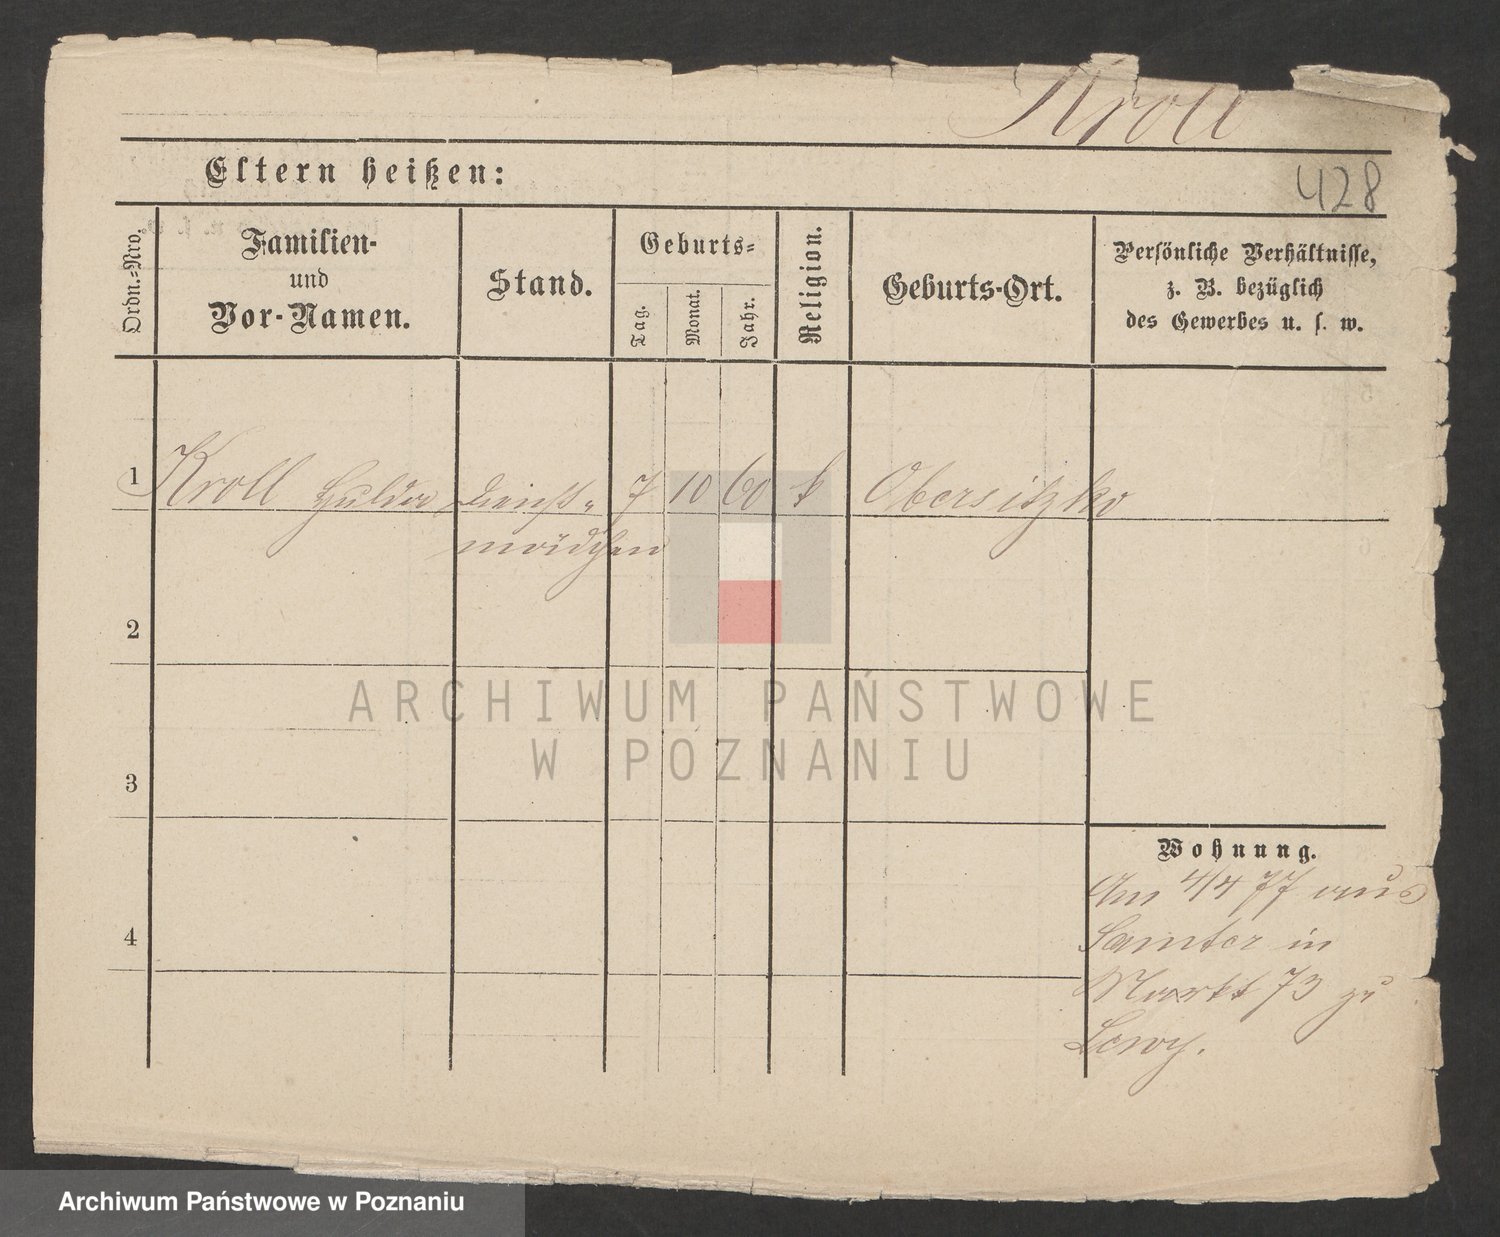 Kroll
Eltern heißen:
428
Ordn.-Nro.
Familien-
und
Vor-Namen.
Stand.
Geburts-
Tag.
Monat.
Jahr.
Religion.
Geburts-Ort.
Persönliche Verhältnisse,
z. B. bezüglich
des Gewerbes u. s. w.
1 Kroll Hulda Dienst- 7 10 60 k Obersitzko
mädchen
2
3
4
Wohnung.
Am 4/4 77 aus
Samter in
Markt 73 zu
Lewy.
ARCHIWUM PAŃSTWOWE
W POZNANIU
Archiwum Państwowe w Poznaniu